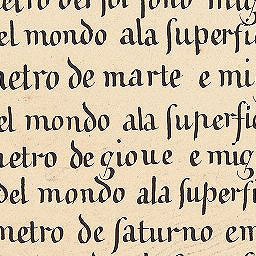 metro del sol sono mig
el mondo ala ſuperfi
metro de marte e mi
el mondo ala ſuperfi
metro de gioue e mig
del mondo ala ſuperfi
metro de ſaturno e m